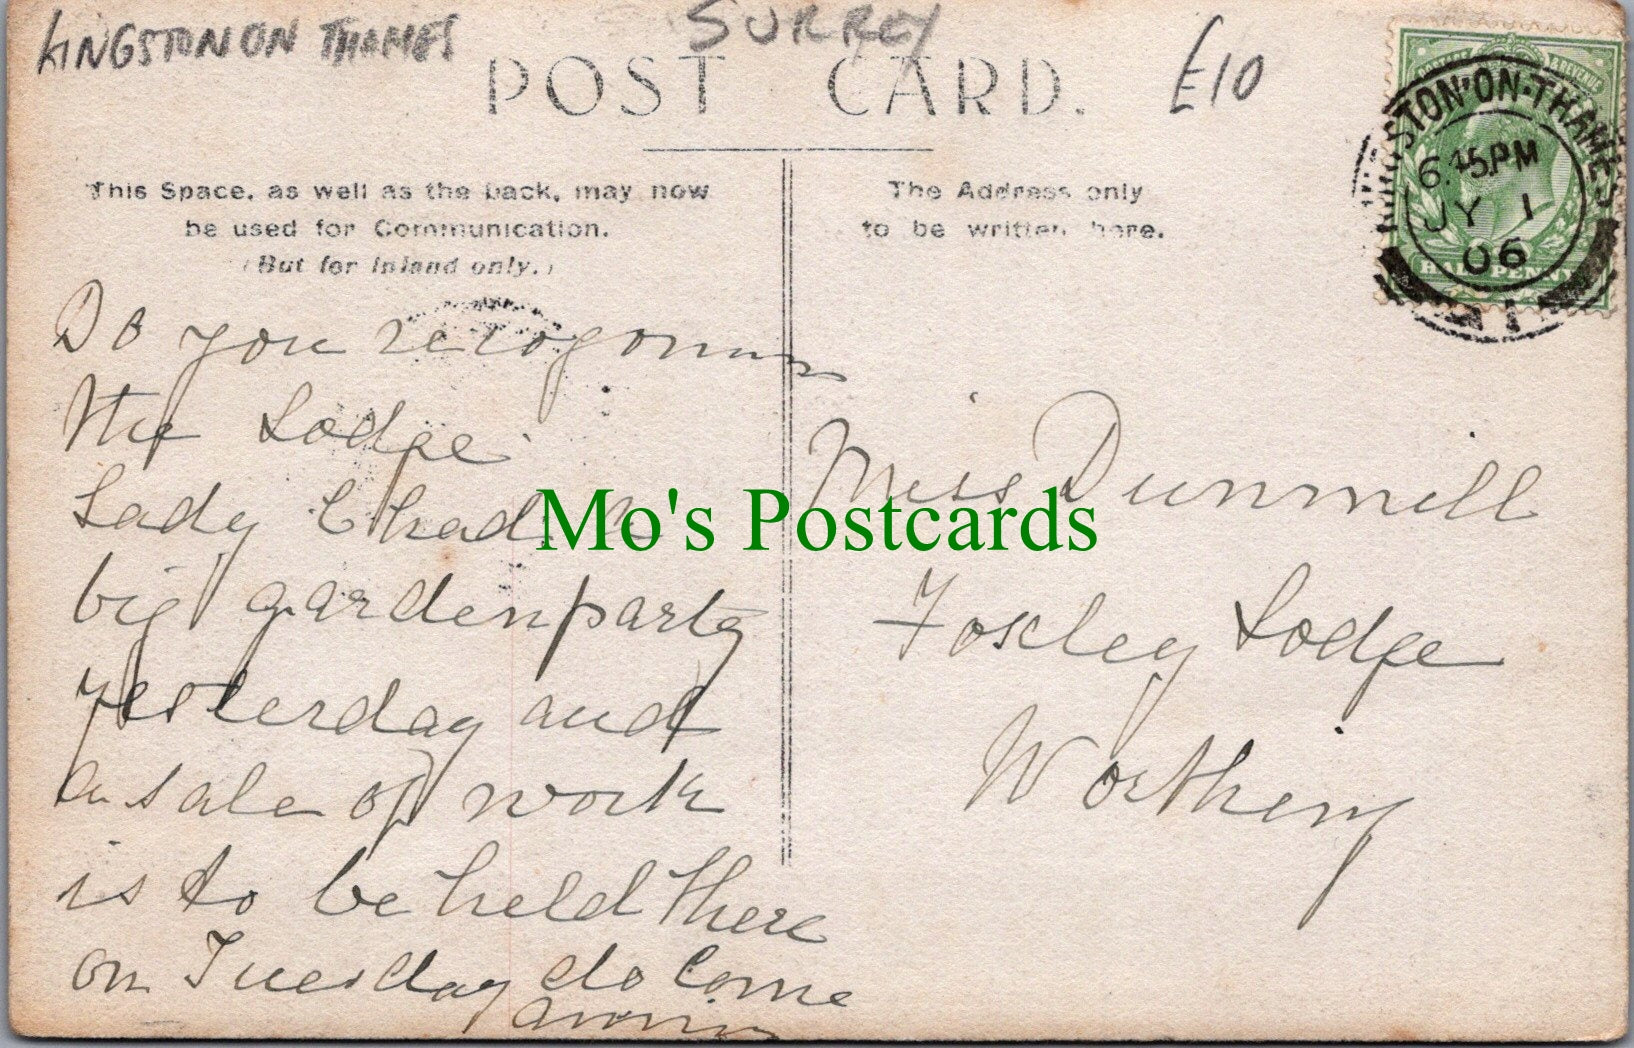 KINGSTON ON THAMES
SURREY
£10
POST CARD.
This Space, as well as the back, may now
be used for Communication.
(But for Inland only.)
The Address only
to be written here.
KINGSTON-ON-THAMES
6.45PM
JY 1
06
HALF PENNY
Do you
the Lodge
Lady C had a
big gardenparty
yesterday and
a sale of work
is to be held there
on Tuesday do come
Miss Dunmill
Foxley Lodge
Worthing
Mo's Postcards